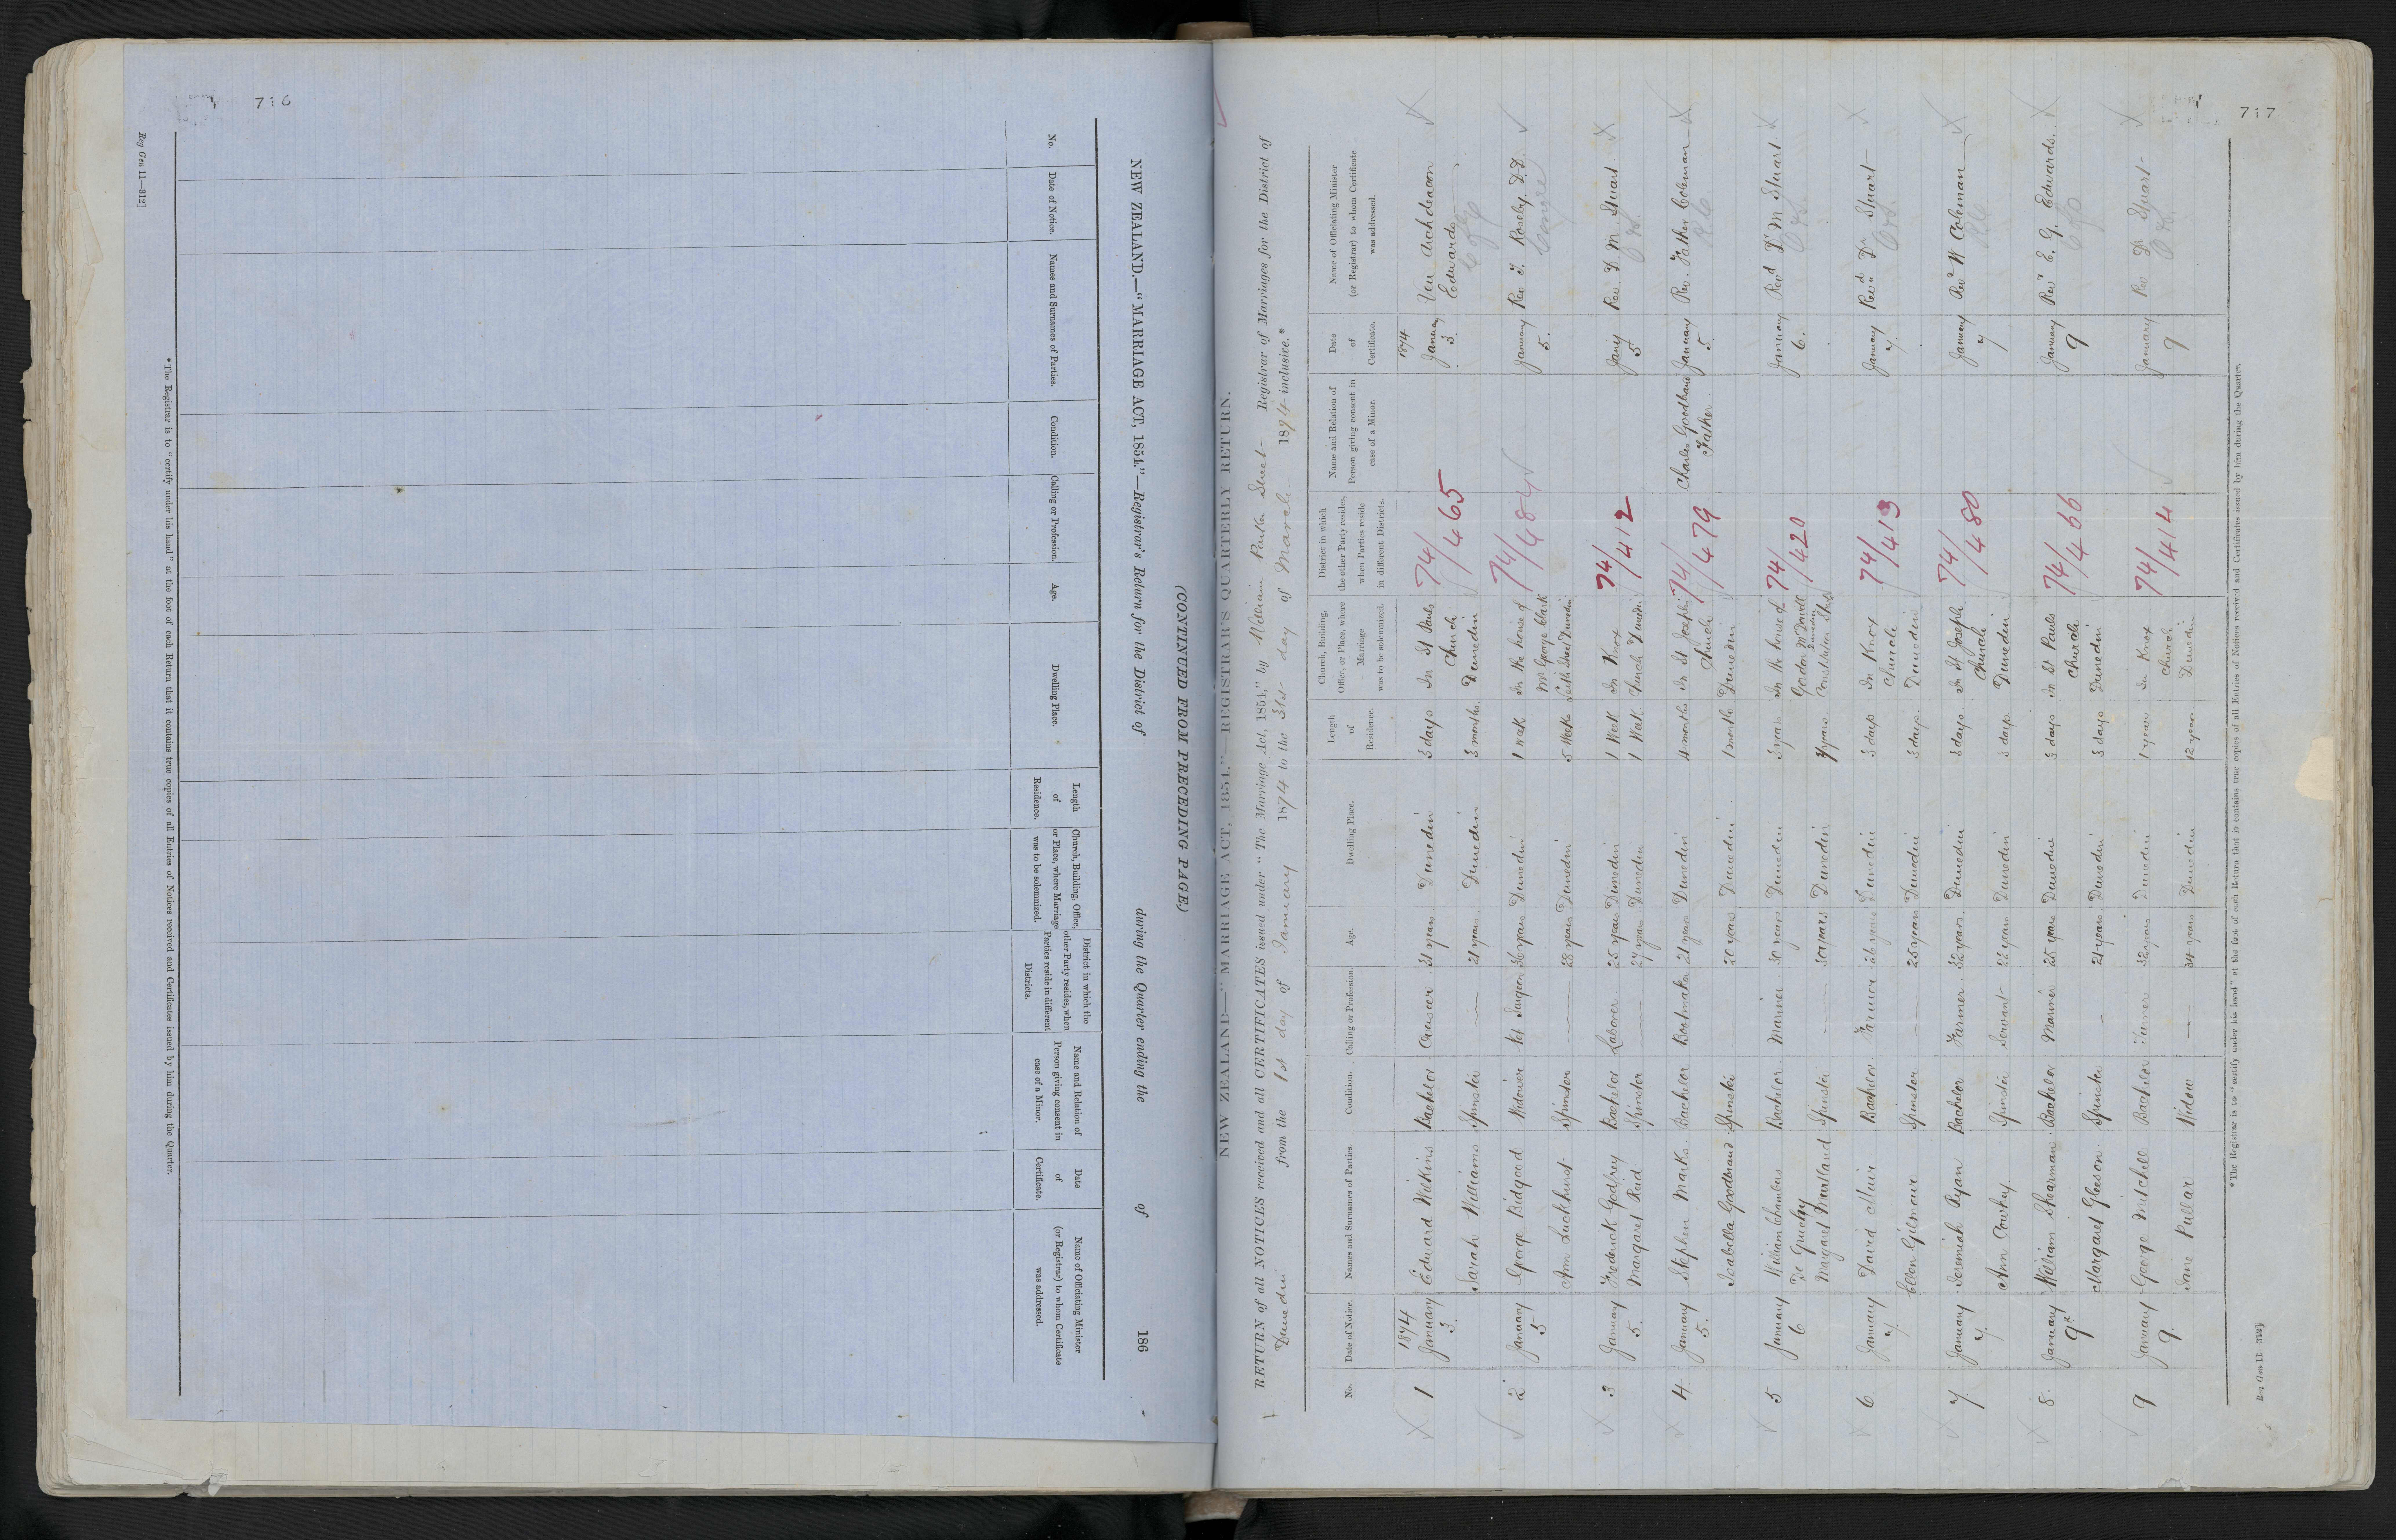 716
NEW ZEALAND.—"MARRIAGE ACT, 1854."—Registrar's Return for the District of during the Quarter ending the of 186
(CONTINUED FROM PRECEDING PAGE.)
No. Date of Notice. Names and Surnames of Parties. Condition. Calling or Profession. Age. Dwelling Place. Length of Residence. Church, Building, Office, or Place, where Marriage was to be solemnized. District in which the other Party resides, when Parties reside in different Districts. Name and Relation of Person giving consent in case of a Minor. Date of Certificate. Name of Officiating Minister (or Registrar) to whom Certificate was addressed.
*The Registrar is to "certify under his hand" at the foot of each Return that it contains true copies of all Entries of Notices received and Certificates issued by him during the Quarter.
Reg Gen 11—312]
717
NEW ZEALAND—"MARRIAGE ACT, 1854."—REGISTRAR'S QUARTERLY RETURN.
RETURN of all NOTICES received and all CERTIFICATES issued under "The Marriage Act, 1854," by William Parker Street Registrar of Marriages for the District of
Dunedin from the 1st day of January 1874 to the 31st day of March 1874 inclusive.*
No. Date of Notice. Names and Surnames of Parties. Condition. Calling or Profession. Age. Dwelling Place. Length of Residence. Church, Building, Office, or Place, where Marriage was to be solemnized. District in which the other Party resides, when Parties reside in different Districts. Name and Relation of Person giving consent in case of a Minor. Date of Certificate. Name of Officiating Minister (or Registrar) to whom Certificate was addressed.
1874 1874
1 January 3. Edward Wilkins Bachelor 31 years Dunedin 3 days In St Pauls Church Dunedin 74/465 January 3. Ven Archdeacon Edwards
Sarah Williams Spinster — 21 years Dunedin 3 months
2 January 5 George Bidgood Widower Vet Surgeon 36 years Dunedin 1 week In the house of Mr George Clark Dunedin 74/484 January 5. Rev T. Roseby. D.D. Congre
Ann Luckhurst Spinster — 28 years Dunedin 5 weeks
3 January 5. Frederick Godfrey Bachelor Laborer 25 years Dunedin 1 Week In Knox Church Dunedin 74/412 Jany 5 Rev D. M. Stuart
Margaret Reid Spinster — 27 years Dunedin 1 Week
4 January 5. Stephen Marks Bachelor Bootmaker 21 years Dunedin 4 months In St Josephs Church Dunedin 74/479 Charles Goodbrand Father January 5. Rev. Father Coleman R.C.
Isabella Goodbrand Spinster 20 years Dunedin 1 month
5 January 6 William Chambers De Gruchy Bachelor Mariner 30 years Dunedin 3 years In the house of Dunedin 74/420 January 6. Revd Dr M Stuart
Margaret Maitland Spinster — 30 years Dunedin years
6 January 7. David Bachelor Farmer 26 years Dunedin 3 days In Knox Church Dunedin 74/413 January 7. Revd Dr Stuart
Ellen Gilmour Spinster — 25 years Dunedin 3 days
7 January 7. Jeremiah Ryan Bachelor Farmer 32 years Dunedin 3 days In St Josephs Church Dunedin 74/480 January 7 Revd W Coleman R.C.
Ann Spinster Servant 22 years Dunedin 3 days
8. January 9th William Bachelor Mariner 25 years Dunedin 3 days in St Pauls Church Dunedin 74/466 January 9 Revd E. G. Edwards
Margaret Gleeson Spinster — 21 years Dunedin 3 days
9 January 9. George Mitchell Bachelor 32 years Dunedin 1 year In Knox Church Dunedin 74/414 January 9 Rev Dr Stuart
Jane Pullar Widow — 34 years Dunedin 12 years
*The Registrar is to "certify under his hand" at the foot of each Return that it contains true copies of all Entries of Notices received and Certificates issued by him during the Quarter.
Reg Gen 11—312]